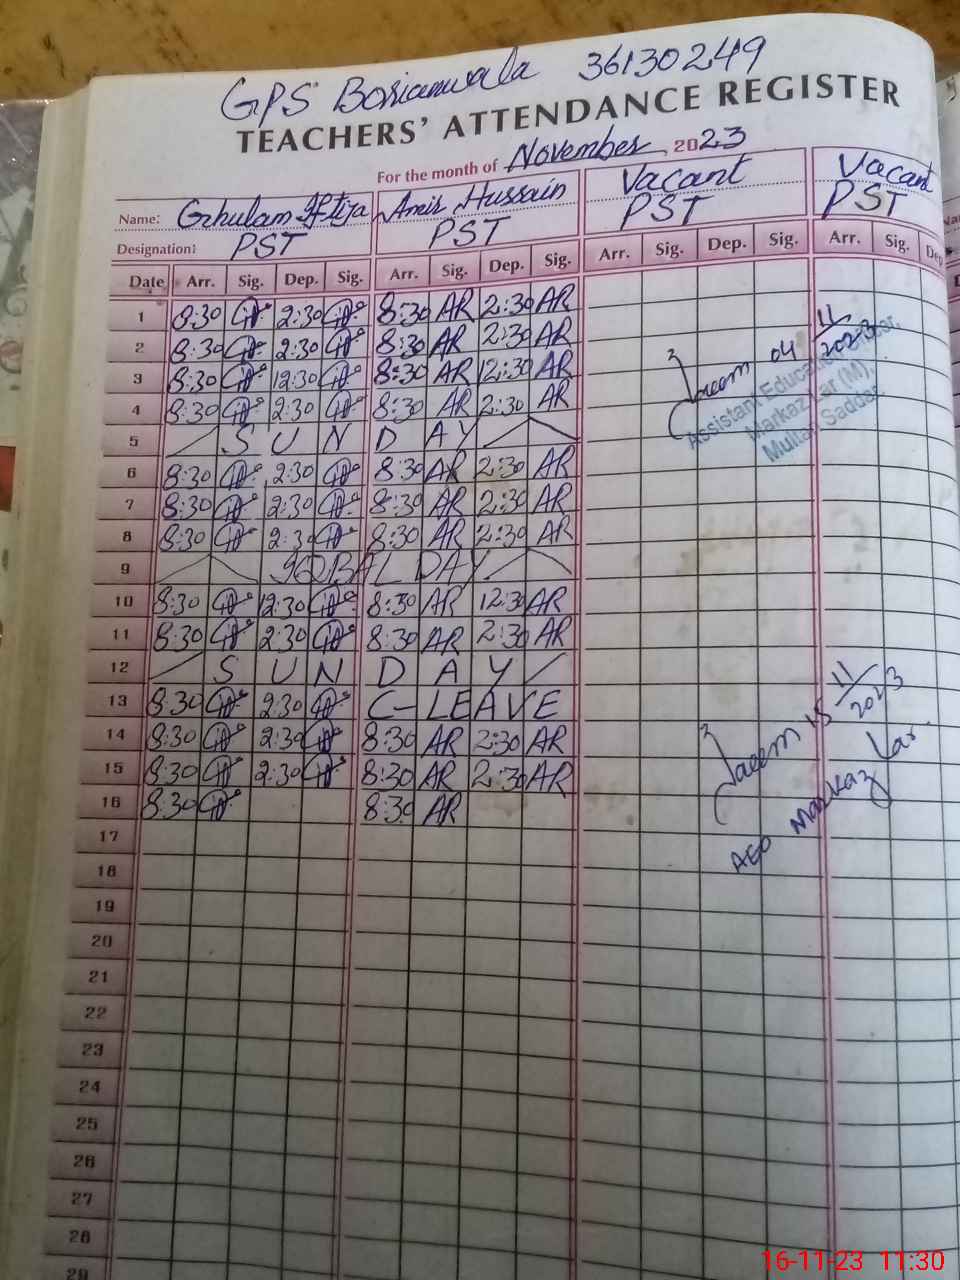 GPS Borianwala 36130249
TEACHERS' ATTENDANCE REGISTER
For the month of November 2023
Name: Ghulam Vacant Vacant
Amir Hussain
Designation: PST PST PST PST
Date Arr. Sig. Dep. Sig. Arr. Sig. Dep. Sig. Arr. Sig. Dep. Sig. Arr. Sig. Dep
1 8:30 2:30 8:30 AR 2:30 AR
2 8:30 2:30 8:30 AR 2:30 AR
3 8:30 12:30 8:30 AR 12:30 AR
4 8:30 2:30 8:30 AR 2:30 AR
5 SUNDAY
6 8:30 2:30 8:30 AR 2:30 AR
7 8:30 2:30 8:30 AR 2:30 AR
8 8:30 2:30 8:30 AR 2:30 AR
9 DAY
10 8:30 12:30 8:30 AR 12:30 AR
11 8:30 2:30 8:30 AR 2:30 AR
12 SUNDAY
13 8:30 2:30 C-LEAVE
14 8:30 2:30 8:30 AR 2:30 AR
15 8:30 2:30 8:30 AR 2:30 AR
16 8:30 8:30 AR
17
18
19
20
21
22
23
24
25
26
27
28
29
04 11/2023
Assistant Education
Markaz Lar (M),
Multan Saddar
15 11/2023
AEO Markaz Lar
16-11-23 11:30